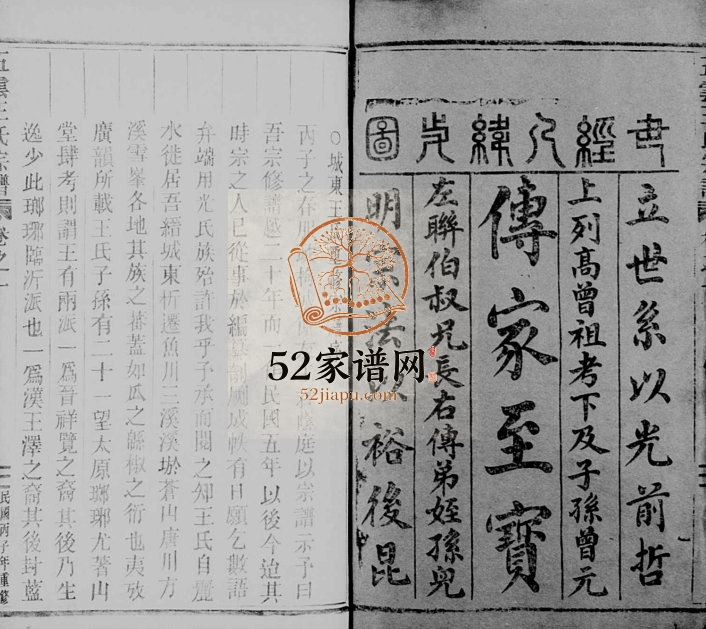 經人緯
圖
立世系以光前哲
上列高曾祖考下及子孫曾元
傳家至寶
左聯伯叔兄長右傳弟姪孫兒
明宗法以裕後昆
王氏宗譜
卷之一
城東王
丙子之春
庭以宗譜示予曰
吾宗修譜
二十年而
民國五年以後今迨其
時宗之人已從事於編
成帙有日願乞數語
弁端用光氏族殆許我乎予承而閱之知王氏自
水徙居吾縉城東析遷魚川三溪溪
蒼山唐川方
溪雪峯各地其族之蕃蓋如瓜之緜椒之衍也夷攷
廣韻所載王氏子孫有二十一望太原瑯琊尤著山
堂肆考則謂王有兩派一爲晉祥覽之裔其後乃生
逸少此瑯琊臨沂派也一爲漢王澤之裔其後封藍
民國丙子年重修
52家谱网
52jiapu.com